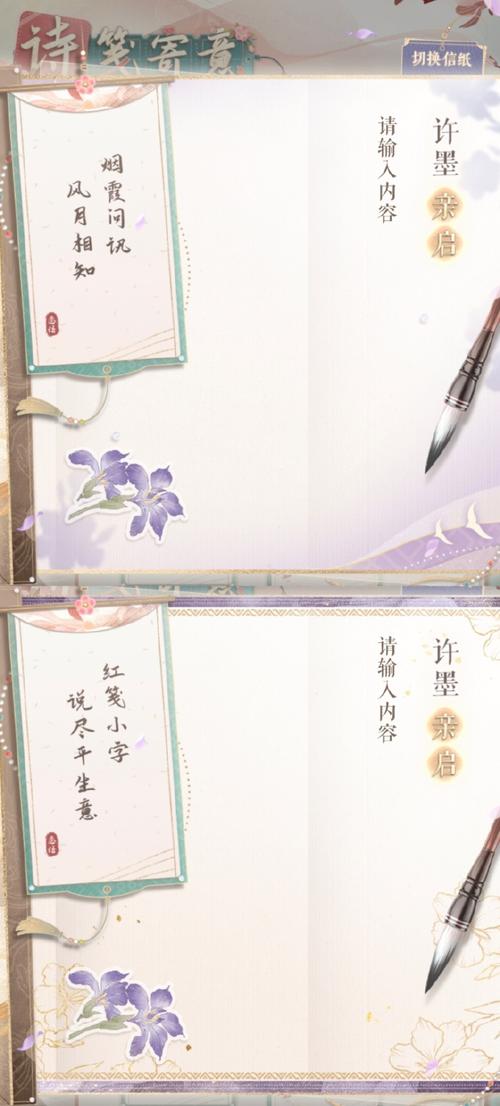 诗笺寄意
切换信纸
许墨 亲启
请输入内容
烟霞问讯
风月相知
许墨 亲启
请输入内容
红笺小字
说尽平生意